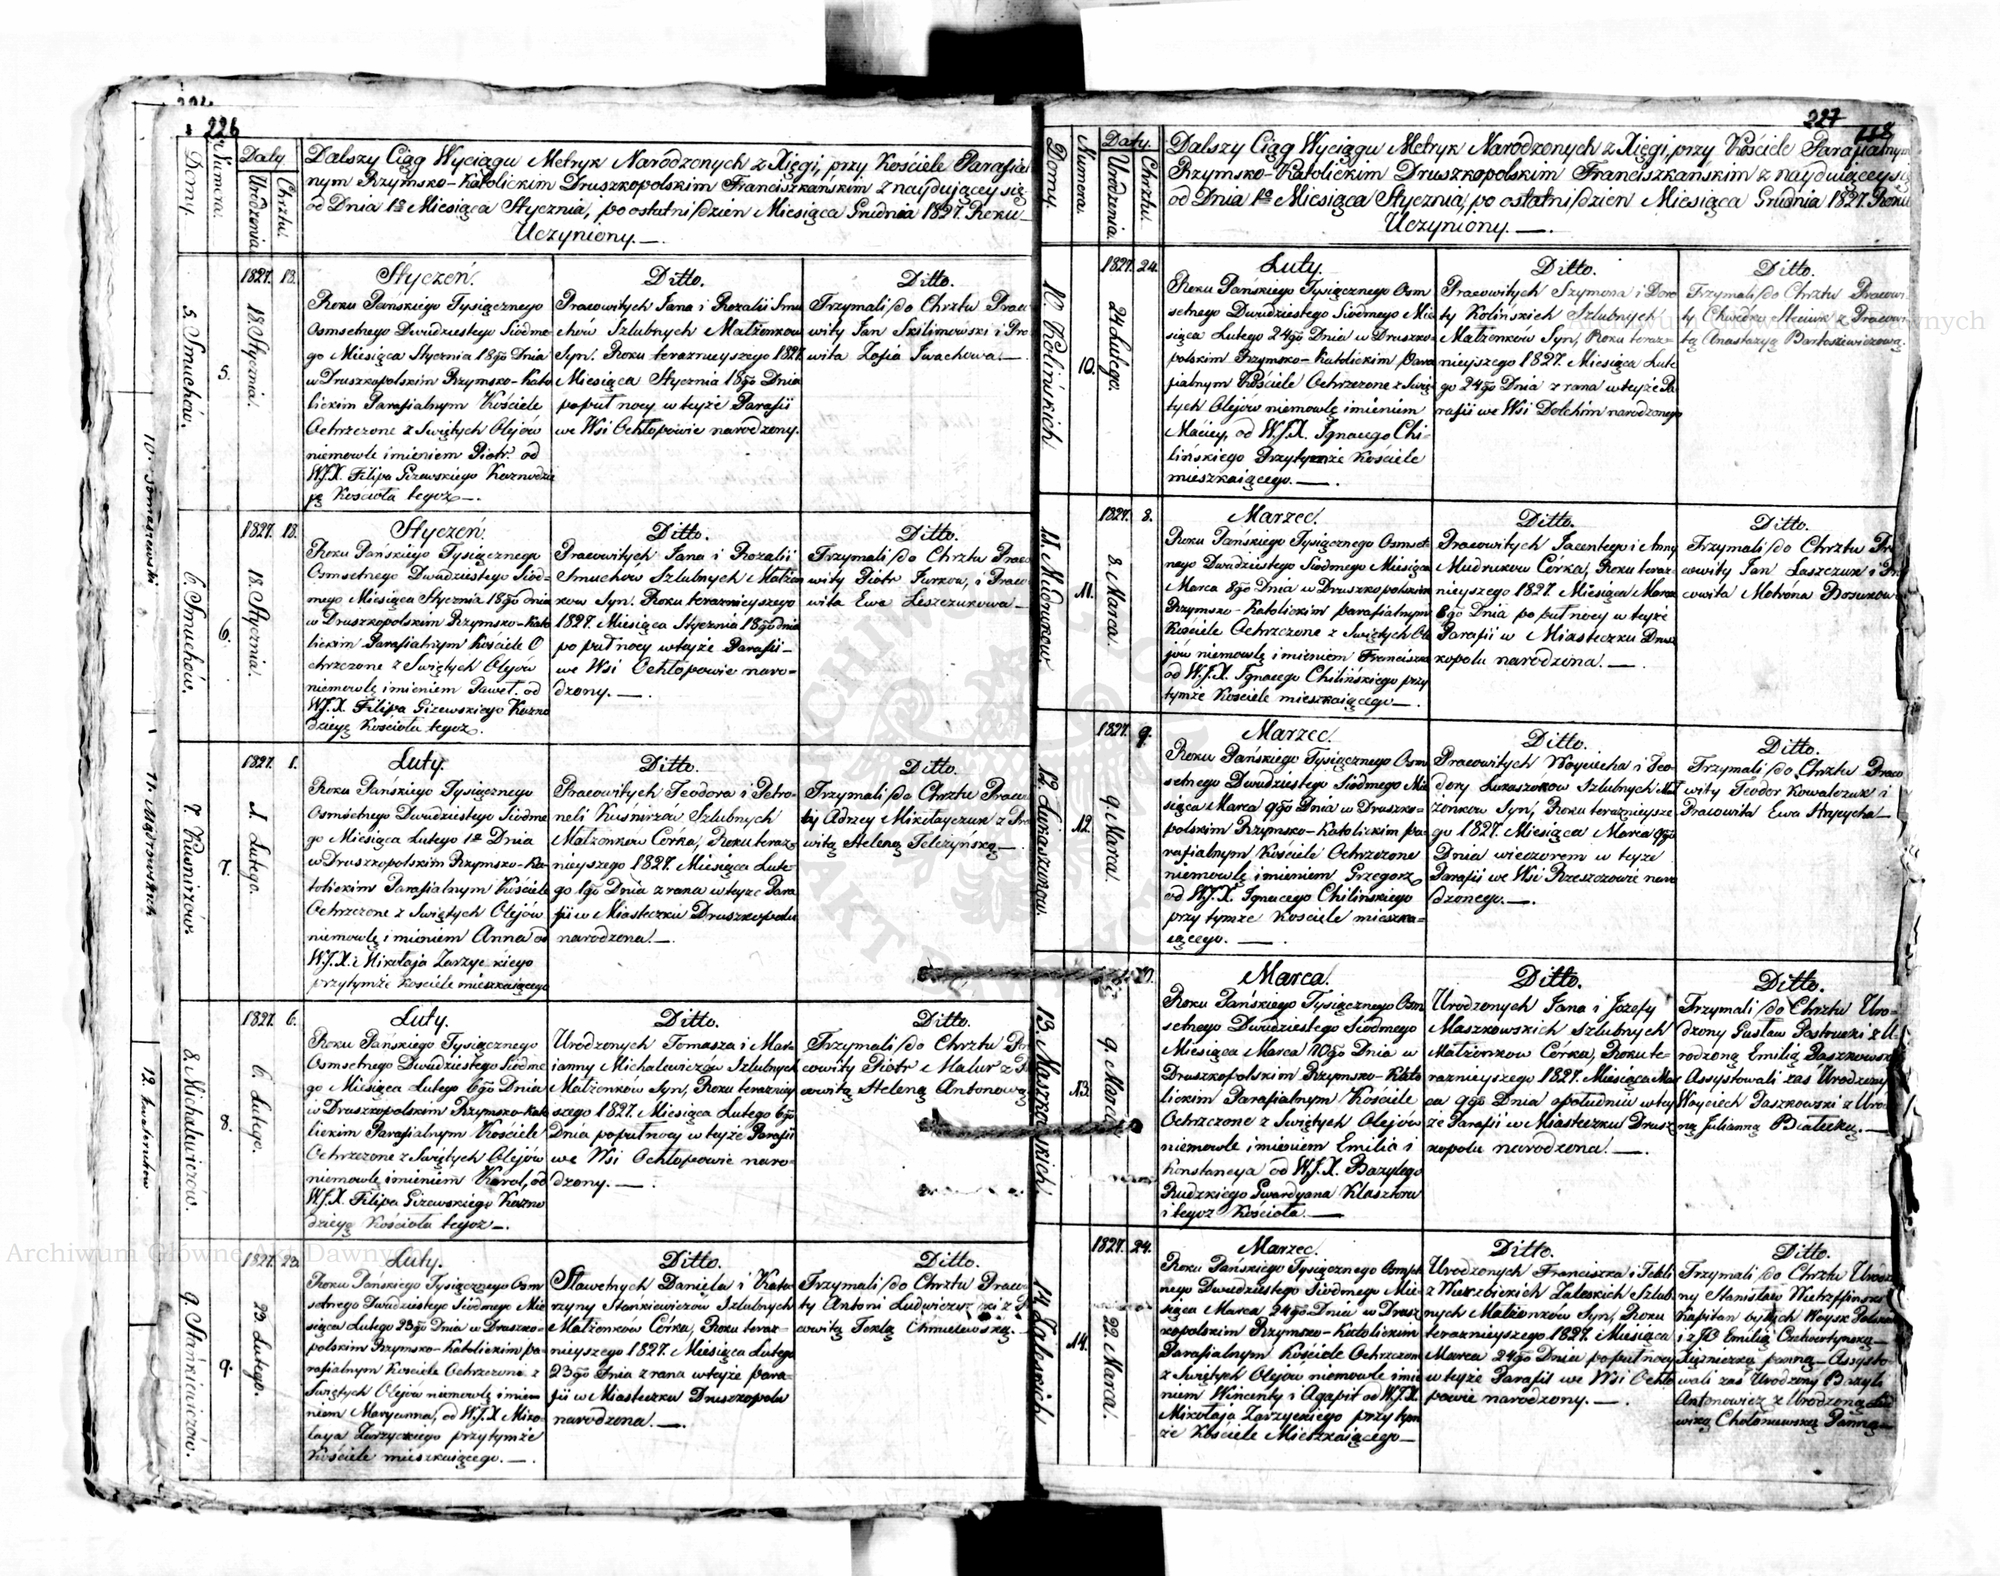 226
Domy.
Numera.
Daty
Urodzenia.
Chrztu.
Dalszy Ciąg Wyciągu Metryk Narodzonych z Xięgi, przy Kościele Parafial
nym Rzymsko-Katolickim Druszkopolskim Franciszkańskim znayduiącey się
od Dnia 1go Miesiąca Stycznia, po ostatni dzień Miesiąca Grudnia 1827. Roku
Uczyniony.—
5. Smuchów.
5.
1827. 18.
18. Stycznia.
Styczeń.
Roku Pańskiego Tysiącznego
Osmsetnego Dwudziestego Siodme-
go Miesiąca Stycznia 18go Dnia
w Druszkopolskim Rzymsko-Kato
lickim Parafialnym Kościele
Ochrzczone z Swiętych Olejów
niemowle imieniem Piotr. od
W.J.X. Filipa Gizewskiego Kaznodzie
ię Kosciola tegoż—.
Ditto.
Pracowitych Jana i Rozalii Smu
chów Szlubnych Małżonkow
Syn. Roku teraznieyszego 1827.
Miesiąca Stycznia 18go Dnia
popułnocy w teyże Parafii
we Wsi Ochłopowie narodzony.
Ditto.
Trzymali do Chrztu Praco
wity Jan Skilimowski i Pra
wita Zofia Iwachowa.—
6. Smuchów.
6.
1827. 18.
18. Stycznia.
Styczeń.
Roku Pańskiego Tysiącznego
Osmsetnego Dwudziestego Siod-
mego Miesiąca Stycznia 18go dnia
w Druszkopolskim Rzymsko-Kato
lickim Parafialnym Kościele O
chrzczone z Swiętych Olejów
niemowlę imieniem Paweł. od
W.J.X. Filipa Gizewskiego Kazno
dzieyę Kościoła tegoż.
Ditto.
Pracowitych Jana i Rozalii
Smuchów Szlubnych Małżon
kow Syn. Roku teraznieyszego
1827. Miesiąca Stycznia 18go dnia
popułnocy w teyże Parafii—
we Wsi Ochłopowie naro-
dzony.—.
Ditto.
Trzymali do Chrztu Praco
wity Piotr Jurkow, i Praco
wita Ewa Leszczukowa—
7. Kusnirzów.
7.
1827. 1.
1. Lutego.
Luty.
Roku Pańskiego Tysiącznego
Osmsetnego Dwudziestego Siodme
go Miesiąca Lutego 1go Dnia
w Druszkopolskim Rzymsko-Ka-
tolickim Parafialnym Kościele
Ochrzczone z Swiętych Olejów
niemowlę imieniem Anna od
W.J.X. Mikołaja Zarzyckiego
przytymże Kościele mieszkaiącego
Ditto.
Pracowitych Teodora i Petro-
neli Kusnirzow Szlubnych
Małżonków Córka, Roku teraz-
nieyszego 1827. Miesiąca Lute
go 1go Dnia z rana w teyże Para
fii w Miasteczku Druszkopolu
narodzona.—.
Ditto.
Trzymali do Chrztu Praco
Adrzey Mikołayczuk z Pra
witą Heleną Telczyńską—
8. Michalewiczów.
8.
1827. 6.
6. Lutego.
Luty.
Roku Pańskiego Tysiącznego
Osmsetnego Dwudziestego Siodme
go Miesiąca Lutego 6go Dnia
w Druszkopolskim Rzymsko-Kato
lickim Parafialnym Kościele
Ochrzczone z Swiętych Olejów
niemowle imieniem Karol, od
W.J.X. Filipa Gizewskiego Kazno
dzieyę Kościoła tegoż—.
Ditto.
Urodzonych Tomasza i Mar-
ianny Michalewiczów Szlubnych
Małżonków Syn, Roku terazniey
szego 1827. Miesiąca Lutego 6go
Dnia popułnocy w teyże Parafii
we Wsi Ochłopowie naro-
dzony.—.
Ditto.
Trzymali do Chrztu Pra
cowity Piotr Matur z P
cowitą Heleną Antonową
9. Stańkiewiczów.
9.
1827. 23.
23. Lutego.
Luty.
Roku Pańskiego Tysiącznego Osm
setnego Dwudziestego Siodmego Mie
siąca Lutego 23go Dnia w Druszko-
polskim Rzymsko-Katolickim pa-
rafialnym Kościele Ochrzczone z
Swiętych Olejów niemowlę imie-
niem Maryanna, od W.J.X. Miko-
laya Zarzyckiego przytymże
Kościele mieszkaiącego.—.
Ditto.
Sławetnych Daniela i Kata
rzyny Stankiewiczów Szlubnych
Małżonków Córka, Roku teraz-
nieyszego 1827. Miesiąca Lutego
23go Dnia z rana w teyże para-
fii w Miasteczku Druszkopolu
narodzona.—.
Ditto.
Trzymali do Chrztu Praco
ty Antoni Ludwiczyński z P
cowitą Teklą Chmielewską.—
227
Domy.
Numera.
Daty.
Urodzenia.
Chrztu.
Dalszy Ciąg Wyciągu Metryk Narodzonych z Xięgi, przy Kościele Parafialnym
Rzymsko-Katolickim Druszkopolskim Franciszkańskim znayduiącey się
od Dnia 1go Miesiąca Stycznia, po ostatni dzień Miesiąca Grudnia 1827. Roku
Uczyniony.—.
10. Kolińskich.
10.
1827. 24.
24. Lutego.
Luty.
Roku Pańskiego Tysiącznego Osm
setnego Dwudziestego Siodmego Mie
siąca Lutego 24go Dnia w Druszko-
polskim Rzymsko-Katolickim Para
fialnym Kościele Ochrzczone z Swię
tych Olejów niemowlę imieniem
Maciey, od W.J.X. Ignacego Chi-
lińskiego Przytymże Kościele
mieszkaiącego.—.
Ditto.
Pracowitych Szymona i Doro
ty Kolińskich Szlubnych
Małżonków Syn, Roku teraz-
nieyszego 1827. Miesiąca Lute
go 24go Dnia z rana w teyże Pa
rafii we Wsi Dolchim narodzonego
Ditto.
Trzymali do Chrztu Pracowi
ty Chwedko Steciuk z Pracowi
tą Anastazyą Bartoszewiczową.
11. Mudrukow.
11.
1827. 8.
8. Marca.
Marzec.
Roku Pańskiego Tysiącznego Osmset
nego Dwudziestego Siodmego Miesiąca
Marca 8go Dnia w Druszkopolskim
Rzymsko-Katolickim parafialnym
Kościele Ochrzczone z Swiętych Ole
jów niemowlę imieniem Franciszka
od W.J.X. Ignacego Chilińskiego przy
tymże Kościele mieszkaiącego—.
Ditto.
Pracowitych Jacentego i Anny
Mudrukow Córka, Roku teraz-
nieyszego 1827. Miesiąca Marca
8go Dnia popułnocy w teyże
Parafii w Miasteczku Drusz
kopolu narodzona.—.
Ditto.
Trzymali do Chrztu Pra
cowity Jan Łaszczuk i Pra
cowita Matrona Bosukowa
12. Lukaszukow.
12.
1827. 9.
9. Marca.
Marzec.
Roku Pańskiego Tysiącznego Osm
setnego Dwudziestego Siodmego Mie
siąca Marca 9go Dnia w Druszko-
polskim Rzymsko-Katolickim pa-
rafialnym Kościele Ochrzczone
niemowlę imieniem Grzegorz
od W.J.X. Ignacego Chilińskiego
przytymże Kościele mieszka-
iącego.—.
Ditto.
Pracowitych Woyciecha i Teo-
dory Lukaszukow Szlubnych Mał
żonkow Syn, Roku teraznieysze
go 1827. Miesiąca Marca 9go
Dnia wieczorem w teyże
Parafii we Wsi Rzeszczowie naro
dzonego.—.
Ditto.
Trzymali do Chrztu Praco
wity Teodor Kowalczuk i
Pracowita Ewa Hrycycha—
13. Maszkowskich.
13.
9. Marca
Marca.
Roku Pańskiego Tysiącznego Osm
setnego Dwudziestego Siodmego
Miesiąca Marca 10go Dnia w
Druszkopolskim Rzymsko-Kato
lickim Parafialnym Kościele
Ochrzczone z Swiętych Olejów
niemowle imieniem Emilia i
Konstancya od W.J.X. Bazylego
Rudzkiego Gwardyana Klasztoru
i tegoż Kościoła.—
Ditto.
Urodzonych Jana i Jozefy
Maszkowskich Szlubnych
Małżonkow Córka, Roku te-
raznieyszego 1827. Miesiąca Mar
ca 9go Dnia opołudniu w tey
że Parafii w Miasteczku Drusz
kopolu narodzona.—.
Ditto.
Trzymali do Chrztu Uro-
dzony Gustaw Pastrucki z U
rodzoną Emilią Paszkowską
Assystowali zas Urodzony
Woyciech Paszkowski z Uro
ną Julianną Białecką.—.
14. Zaleskich.
14.
1827. 24.
22. Marca.
Marzec.
Roku Pańskiego Tysiącznego Osmset
nego Dwudziestego Siodmego Mie-
siąca Marca 24go Dnia w Drusz
kopolskim Rzymsko-Katolickim
Parafialnym Kościele Ochrzczone
z Swiętych Olejów niemowle imie
niem Wincenty i Agapit od W.J.X.
Mikołaja Zarzyckiego przytym
że Kościele Mieszkaiącego—
Ditto.
Urodzonych Franciszka i Tekli
z Wierzbickich Zaleskich Szlub-
nych Małżonków Syn, Roku
teraznieyszego 1827. Miesiąca
Marca 24go Dnia popułnocy
w teyże Parafii we Wsi Ochło
powie narodzony.—.
Ditto.
Trzymali do Chrztu Urodzo
ny Stanisław
Kapitan byłych Woysk Polskich
i z JO Emilią Czetwertyńską—
Xiężniczką panną—Assysto-
wali zaś Urodzony Bazyli
Antonowicz z Urodzoną Lud
wiką Choloniewską Panną—
10. Tomaszewski
11. Wądrowskich
12.
Archiwum Główne Akt Dawnych
Archiwum Główne Akt Dawnych
ARCHIWUM GŁÓWNE AKT DAWNYCH